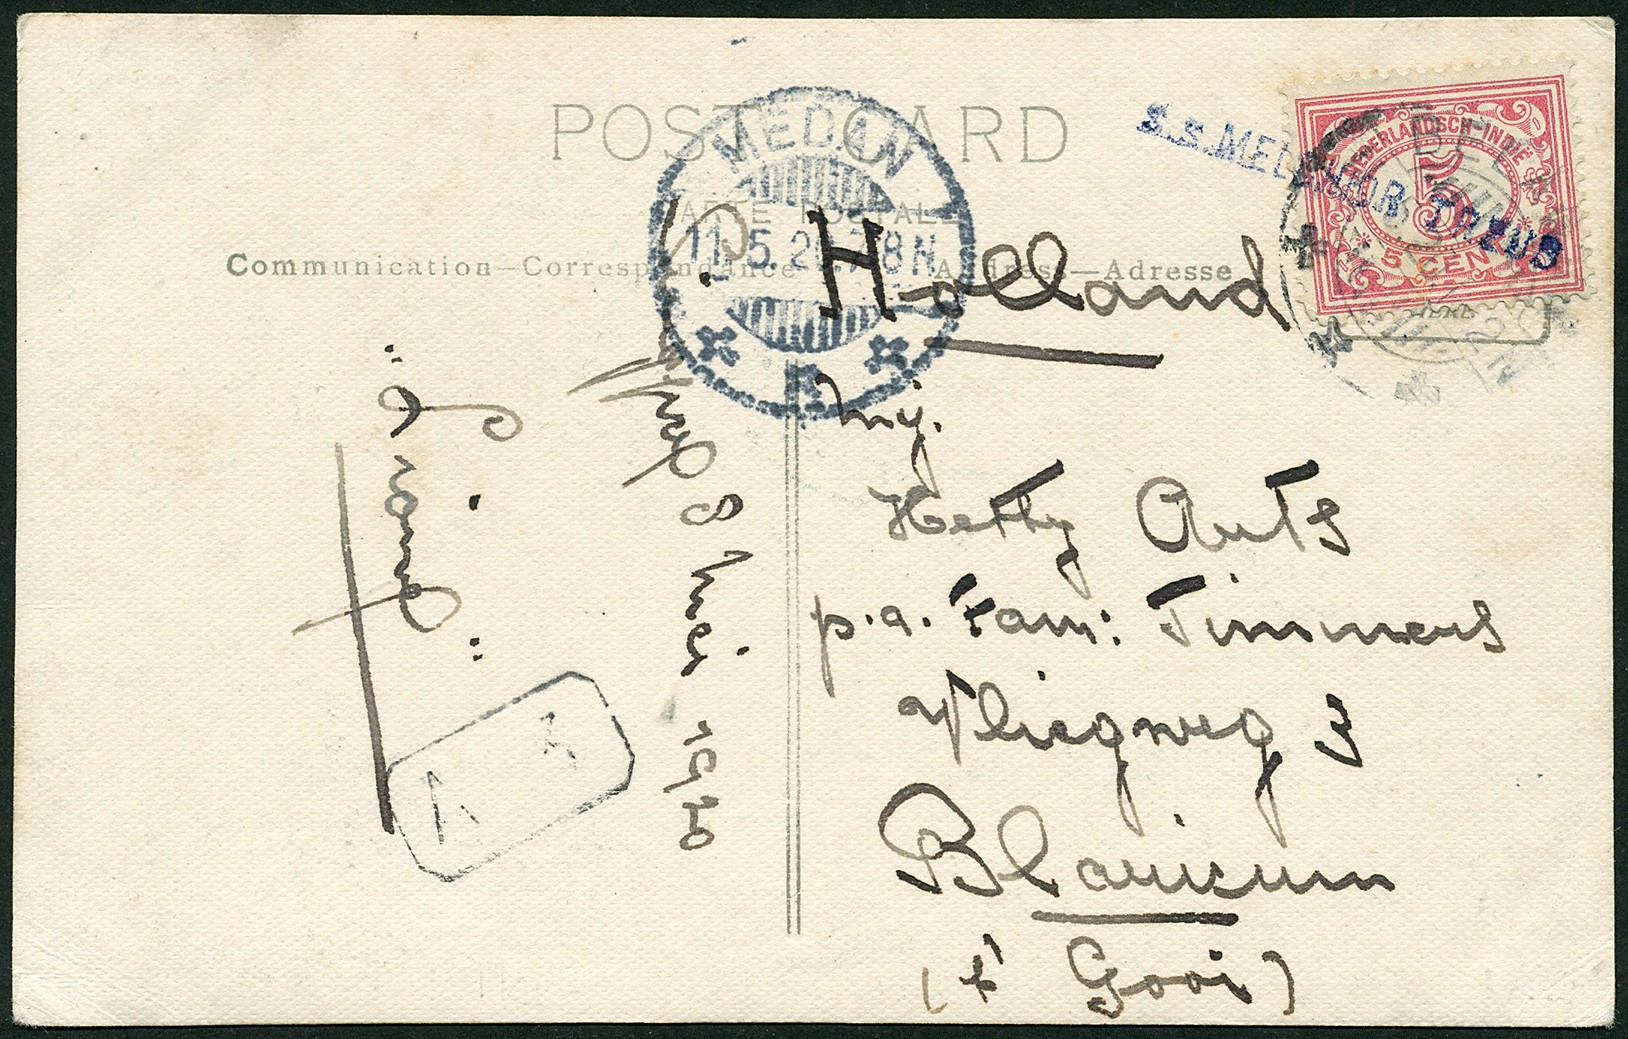 POST CARD
CARTE POSTALE
Communication—Correspondance
Address—Adresse
MEDAN
11.5.20.7-8N
s.s. MELCHIOR TREUB
NEDERLANDSCH-INDIË
5
5 CENT
Holland
Mej.
Hetty Auts
p.a. Fam: Timmers
Vliegweg 3
Blaricum
('t Gooi)
8 Mei 1920
N